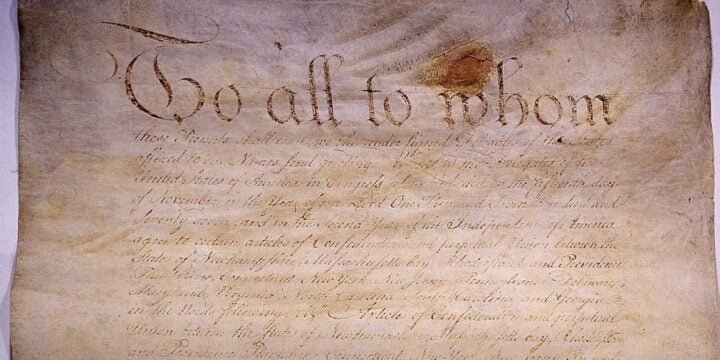 To all to whom
these Presents shall come, we the under signed Delegates of the States
affixed to our Names send greeting. Whereas the Delegates of the
United States of America in Congress assembled did on the fifteenth day
of November in the Year of our Lord One Thousand Seven Hundred and
Seventy seven, and in the Second Year of the Independence of America
agree to certain articles of Confederation and perpetual Union between the
States of Newhampshire, Massachusetts bay, Rhodeisland and Providence
Plantations, Connecticut, New York, New Jersey, Pennsylvania, Delaware,
Maryland, Virginia, North Carolina, South Carolina, and Georgia
in the Words following, viz. Articles of Confederation and perpetual
Union between the States of Newhampshire, Massachusetts bay, Rhodeisland
and Providence Plantations, Connecticut, New York, New Jersey, Pennsylvania